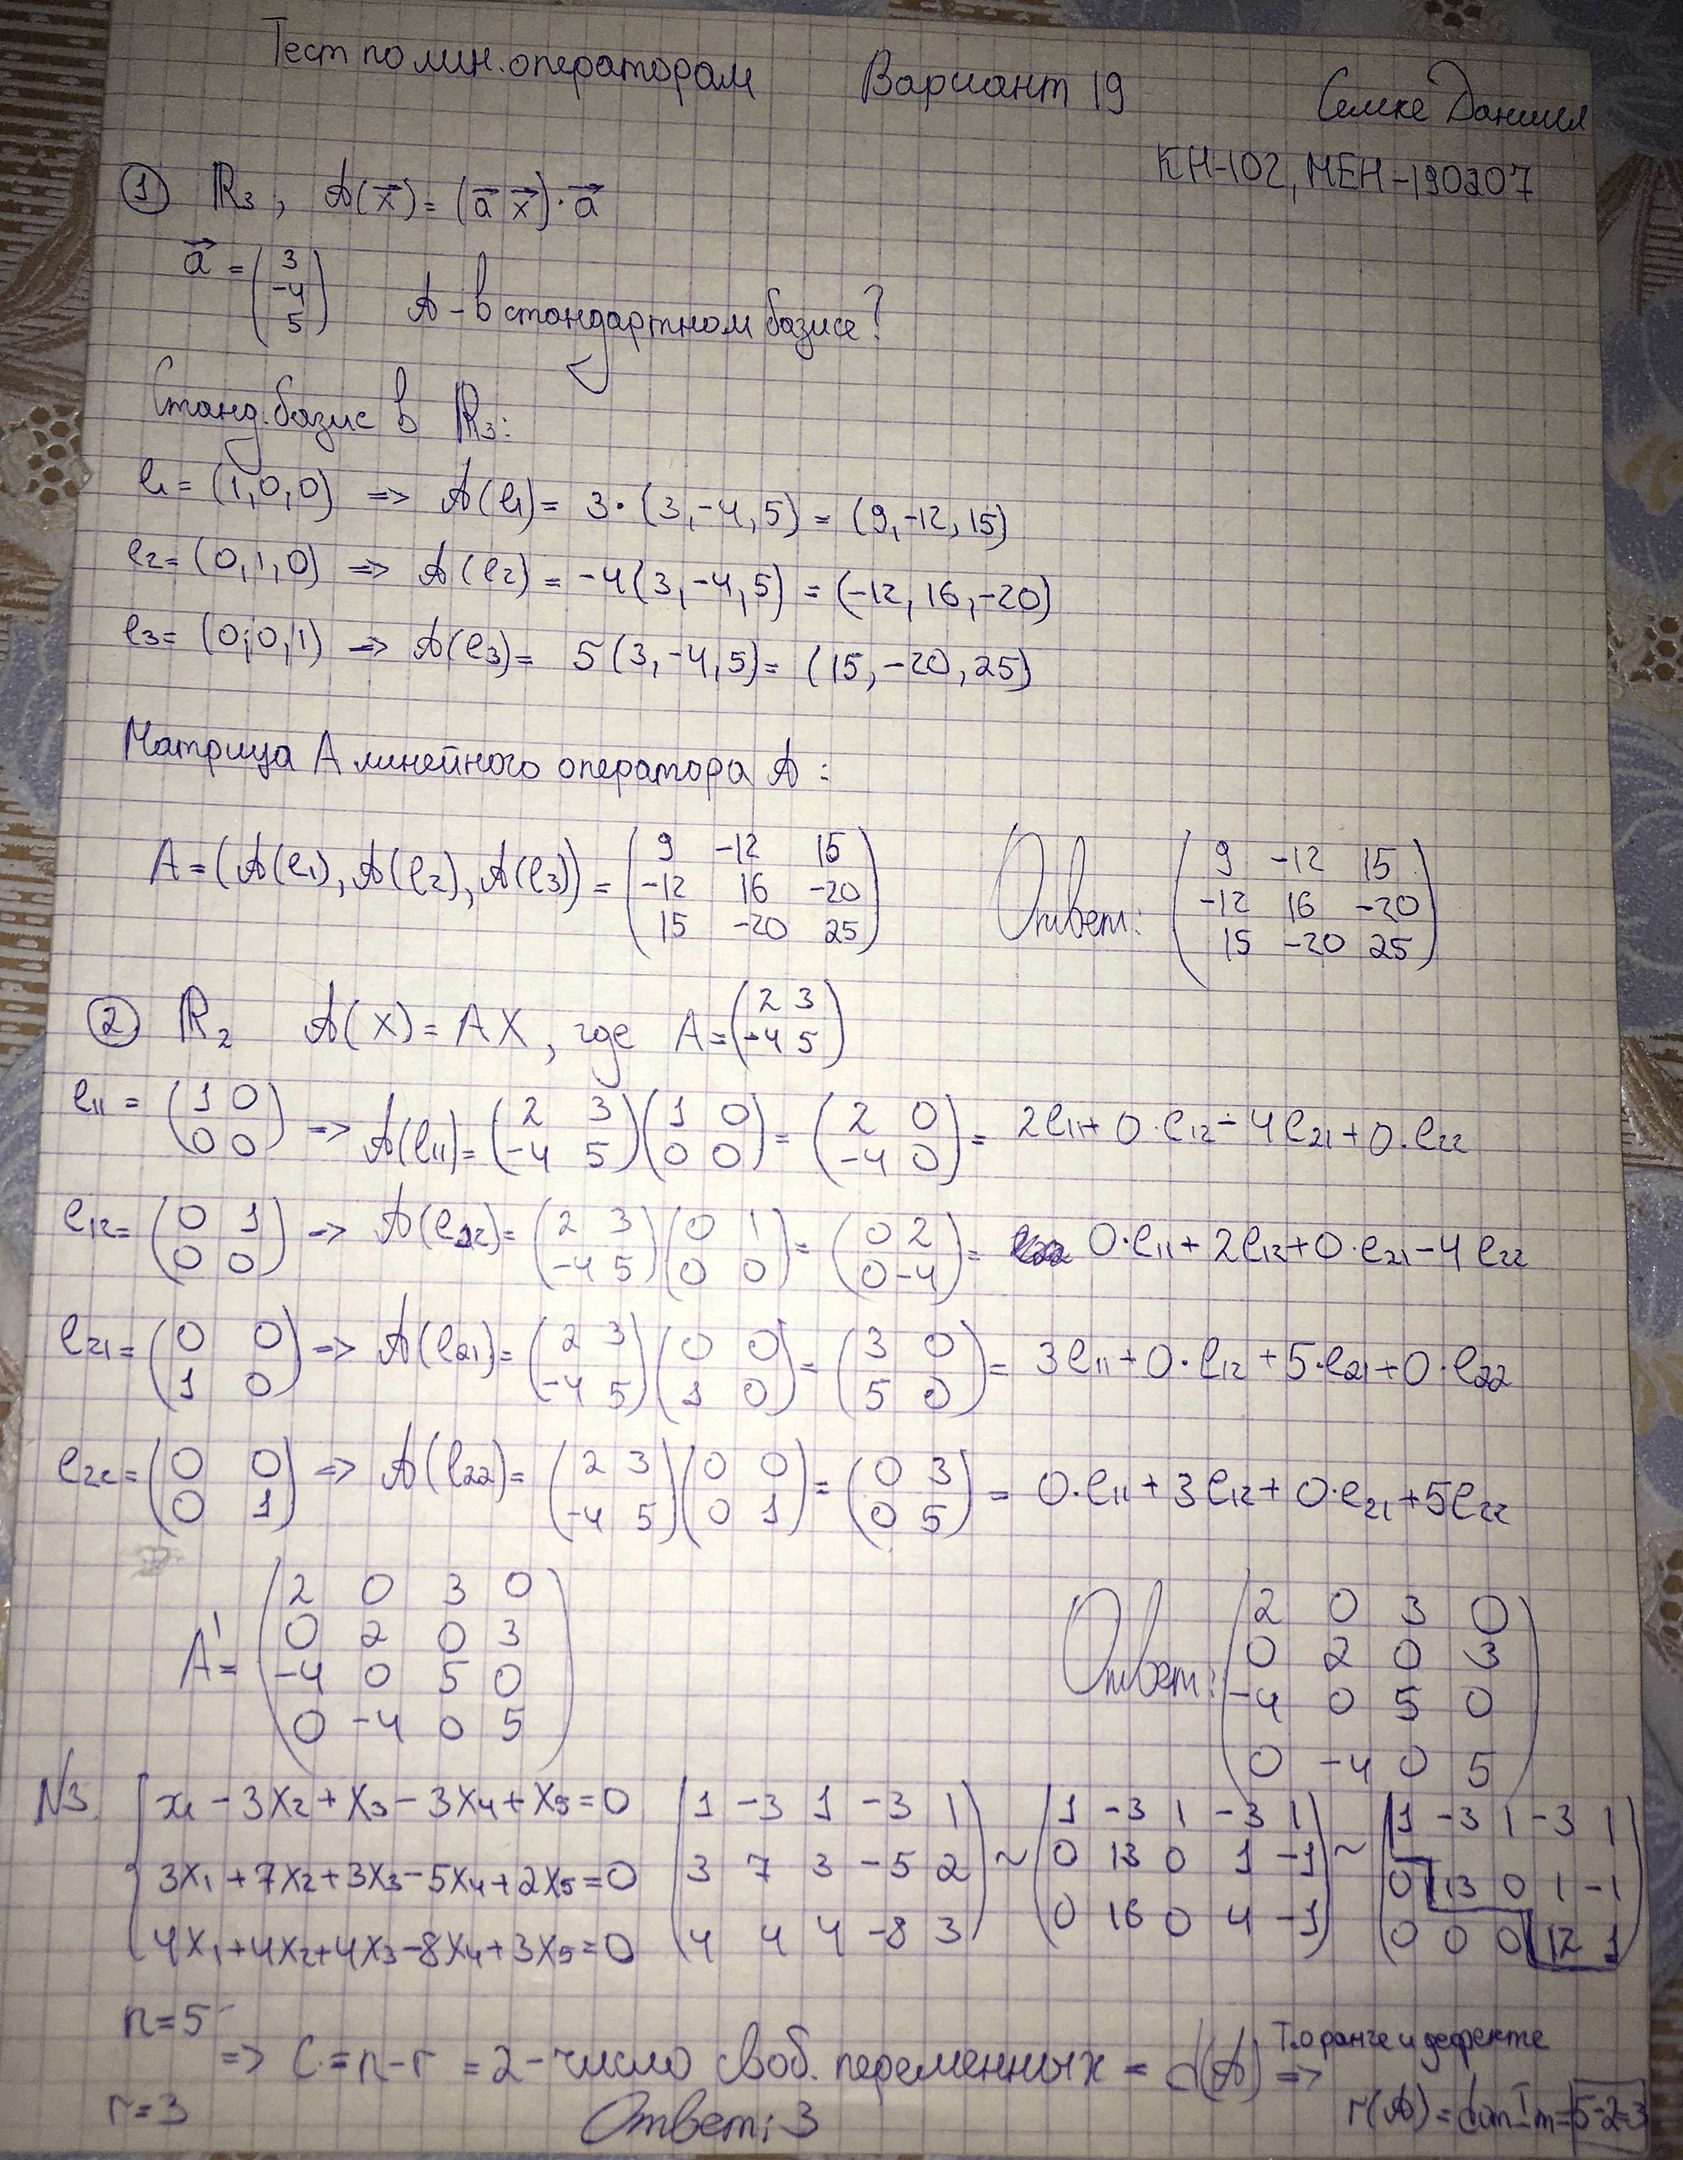 Тест по лин. операторам Вариант 19 Семке Даниил
КН-102, МЕН-190207
① R₃; A(x⃗) = (a⃗ x⃗)·a⃗
a⃗ = (3 -4 5) A - в стандартном базисе?
Станд. базис в R₃:
e₁ = (1,0,0) => A(e₁) = 3·(3,-4,5) = (9,-12,15)
e₂ = (0,1,0) => A(e₂) = -4(3,-4,5) = (-12,16,-20)
e₃ = (0,0,1) => A(e₃) = 5(3,-4,5) = (15,-20,25)
Матрица A линейного оператора A:
A = (A(e₁), A(e₂), A(e₃)) = (9 -12 15
-12 16 -20
15 -20 25)
Ответ: (9 -12 15
-12 16 -20
15 -20 25)
② R₂ A(X) = AX, где A = (2 3
-4 5)
e₁₁ = (1 0 / 0 0) => A(e₁₁) = (2 3 / -4 5)(1 0 / 0 0) = (2 0 / -4 0) = 2e₁₁ + 0·e₁₂ - 4e₂₁ + 0·e₂₂
e₁₂ = (0 1 / 0 0) => A(e₁₂) = (2 3 / -4 5)(0 1 / 0 0) = (0 2 / 0 -4) = 0·e₁₁ + 2e₁₂ + 0·e₂₁ - 4e₂₂
e₂₁ = (0 0 / 1 0) => A(e₂₁) = (2 3 / -4 5)(0 0 / 1 0) = (3 0 / 5 0) = 3e₁₁ + 0·e₁₂ + 5·e₂₁ + 0·e₂₂
e₂₂ = (0 0 / 0 1) => A(e₂₂) = (2 3 / -4 5)(0 0 / 0 1) = (0 3 / 0 5) = 0·e₁₁ + 3e₁₂ + 0·e₂₁ + 5e₂₂
A' = (2 0 3 0
0 2 0 3
-4 0 5 0
0 -4 0 5)
Ответ: (2 0 3 0
0 2 0 3
-4 0 5 0
0 -4 0 5)
N3. x₁ - 3x₂ + x₃ - 3x₄ + x₅ = 0 (1 -3 1 -3 1 (1 -3 1 -3 1 (1 -3 1 -3 1
3x₁ + 7x₂ + 3x₃ - 5x₄ + 2x₅ = 0 3 7 3 -5 2 ~ 0 13 0 1 -1 ~ 0 13 0 1 -1
4x₁ + 4x₂ + 4x₃ - 8x₄ + 3x₅ = 0 4 4 4 -8 3) 0 16 0 4 -1) 0 0 0 12 1)
n = 5
r = 3
=> C = n - r = 2 - число своб. переменных = d(A) => Т. о ранге и дефекте
r(A) = dim Im = 5-2=3
Ответ: 3